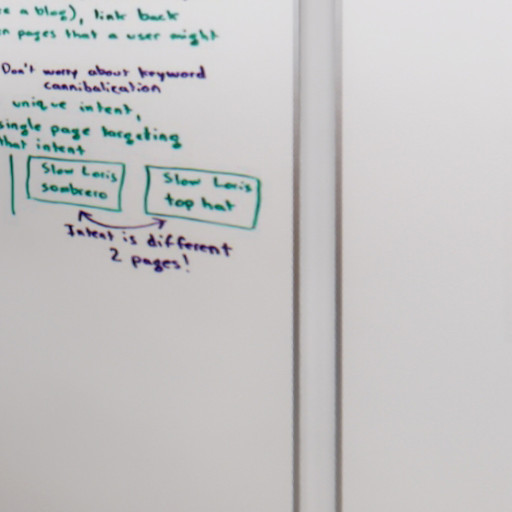 e a blog), link back
n pages that a user might
Don't worry about keyword
cannibalization
unique intent,
single page targeting
that intent
Slow Loris
sombrero
Slow Loris
top hat
Intent is different
2 pages!